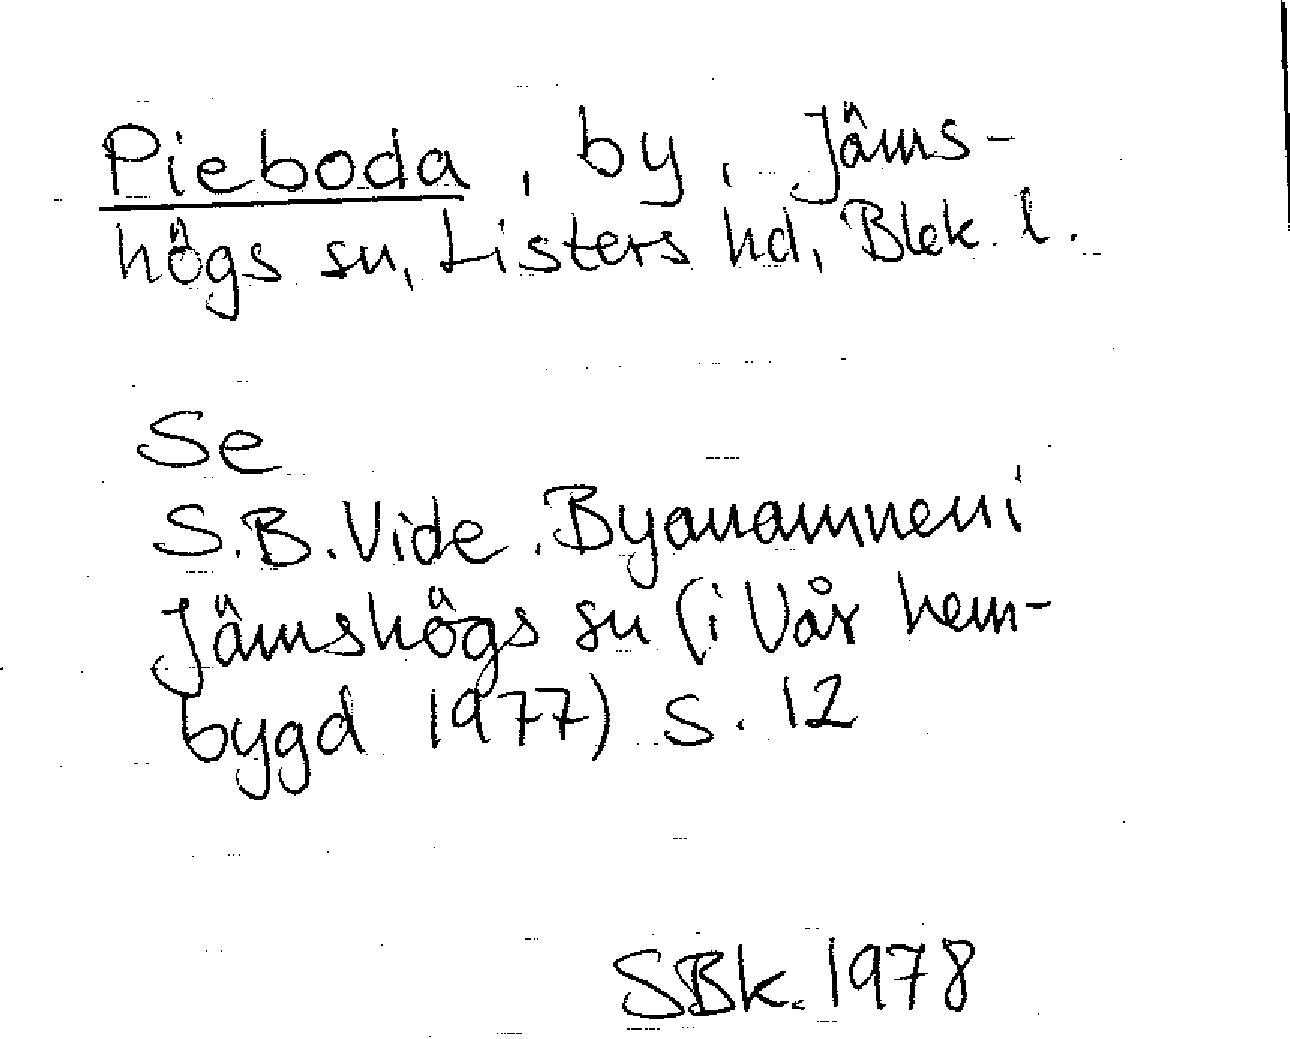 Pieboda, by, Jäms-
högs sn, Listers hd, Blek. l.
Se
S.B. Vide, Byanamnen i
Jämshögs sn (i Vår hem-
bygd 1977) s. 12
SBk. 1978